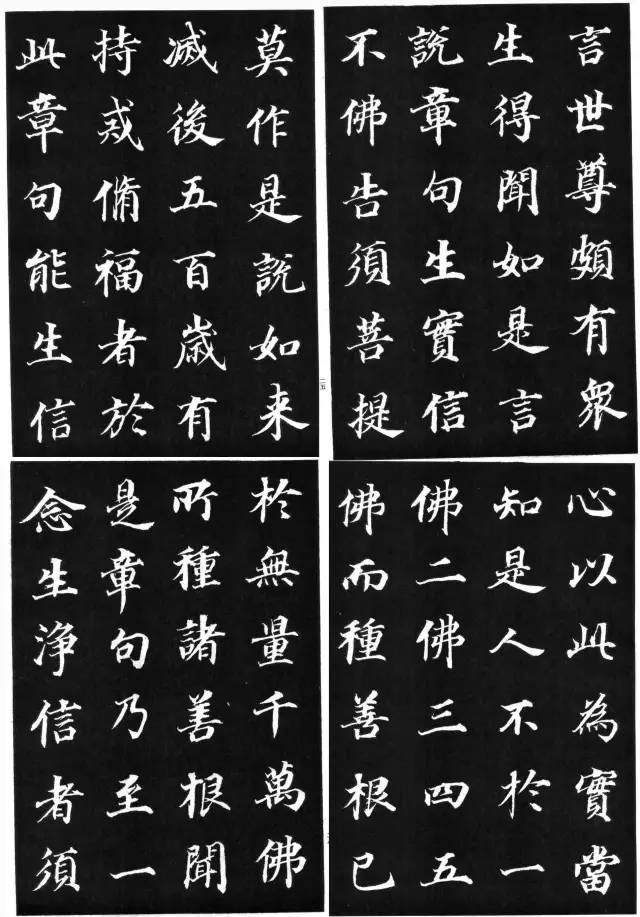 言世尊頗有衆
生得聞如是言
說章句生實信
不佛告須菩提
莫作是說如来
滅後五百歲有
持戒脩福者於
此章句能生信
心以此為實當
知是人不於一
佛二佛三四五
佛而種善根已
於無量千萬佛
所種諸善根聞
是章句乃至一
念生淨信者須